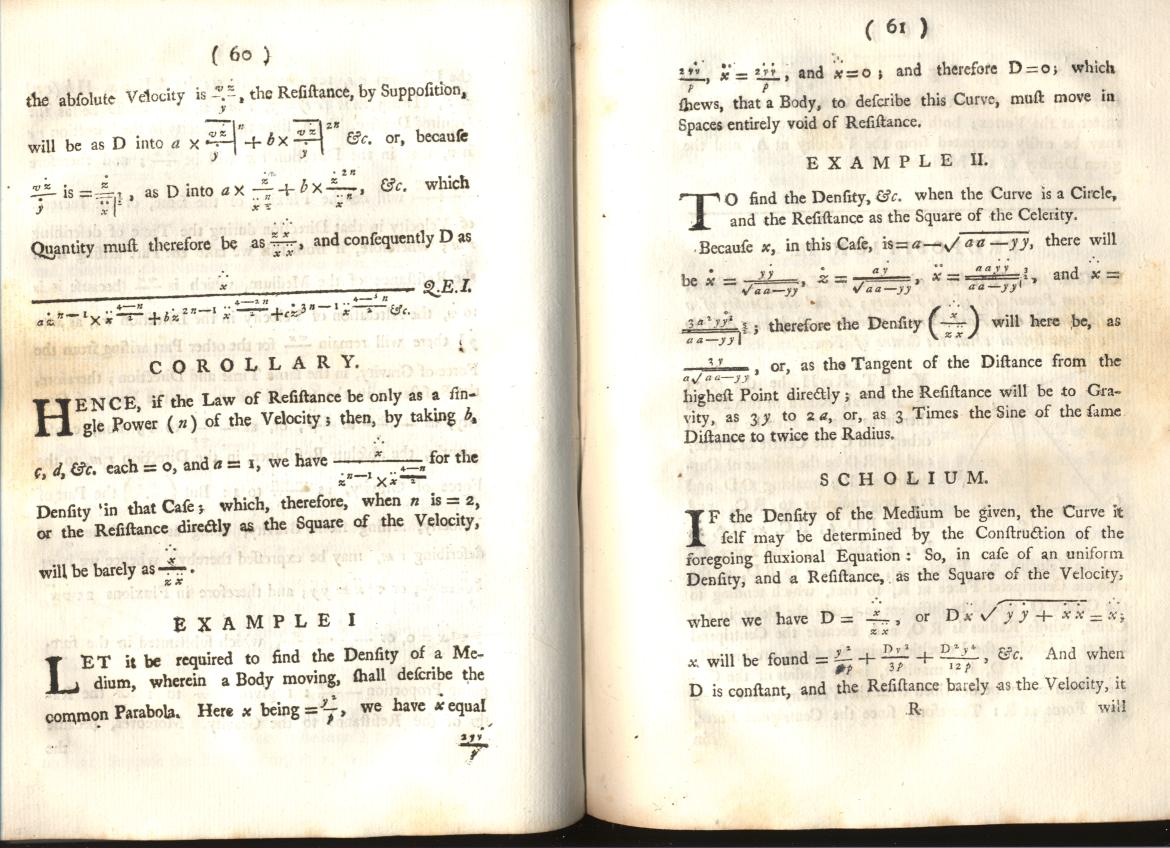 ( 60 )
the abſolute Velocity is vż/ẏ, the Reſiſtance, by Suppoſition,
will be as D into a × vż/ẏ|ⁿ + b × vż/ẏ|²ⁿ &c. or, becauſe
vż/ẏ is = ż/ẍ|½, as D into a × żⁿ/ẍⁿ⁄² + b × ż²ⁿ/ẍⁿ, &c. which
Quantity muſt therefore be as , and conſequently D as
Q.E.I.
COROLLARY.
HENCE, if the Law of Reſiſtance be only as a ſin-
gle Power (n) of the Velocity; then, by taking b,
c, d, &c. each = 0, and a = 1, we have for the
Denſity in that Caſe; which, therefore, when n is = 2,
or the Reſiſtance directly as the Square of the Velocity,
will be barely as ẋ̈/żẍ.
EXAMPLE I
LET it be required to find the Denſity of a Me-
dium, wherein a Body moving, ſhall deſcribe the
common Parabola. Here x being = y²/p, we have ẋ equal
2yẏ/p
( 61 )
2yẏ/p, ẍ = 2ẏẏ/p, and ẋ̈ = 0; and therefore D=0; which
ſhews, that a Body, to deſcribe this Curve, muſt move in
Spaces entirely void of Reſiſtance.
EXAMPLE II.
TO find the Denſity, &c. when the Curve is a Circle,
and the Reſiſtance as the Square of the Celerity.
Becauſe x, in this Caſe, is = a − √aa − yy, there will
be ẋ = yẏ/√aa−yy, ż = aẏ/√aa−yy, ẍ = aaẏẏ/aa−yy|3/2, and ẋ̈ =
3a²yẏ³/aa−yy|5/2; therefore the Denſity (ẋ̈/żẍ) will here be, as
3y/a√aa−yy, or, as the Tangent of the Diſtance from the
higheſt Point directly; and the Reſiſtance will be to Gra-
vity, as 3y to 2a, or, as 3 Times the Sine of the ſame
Diſtance to twice the Radius.
SCHOLIUM.
IF the Denſity of the Medium be given, the Curve it
ſelf may be determined by the Conſtruction of the
foregoing fluxional Equation: So, in caſe of an uniform
Denſity, and a Reſiſtance, as the Square of the Velocity,
where we have D = ẋ̈/żẍ, or Dẍ√ẏẏ + ẋẋ = ẋ̈;
x will be found = y²/p + Dy³/3p + D²y⁴/12p, &c. And when
D is conſtant, and the Reſiſtance barely as the Velocity, it
R will